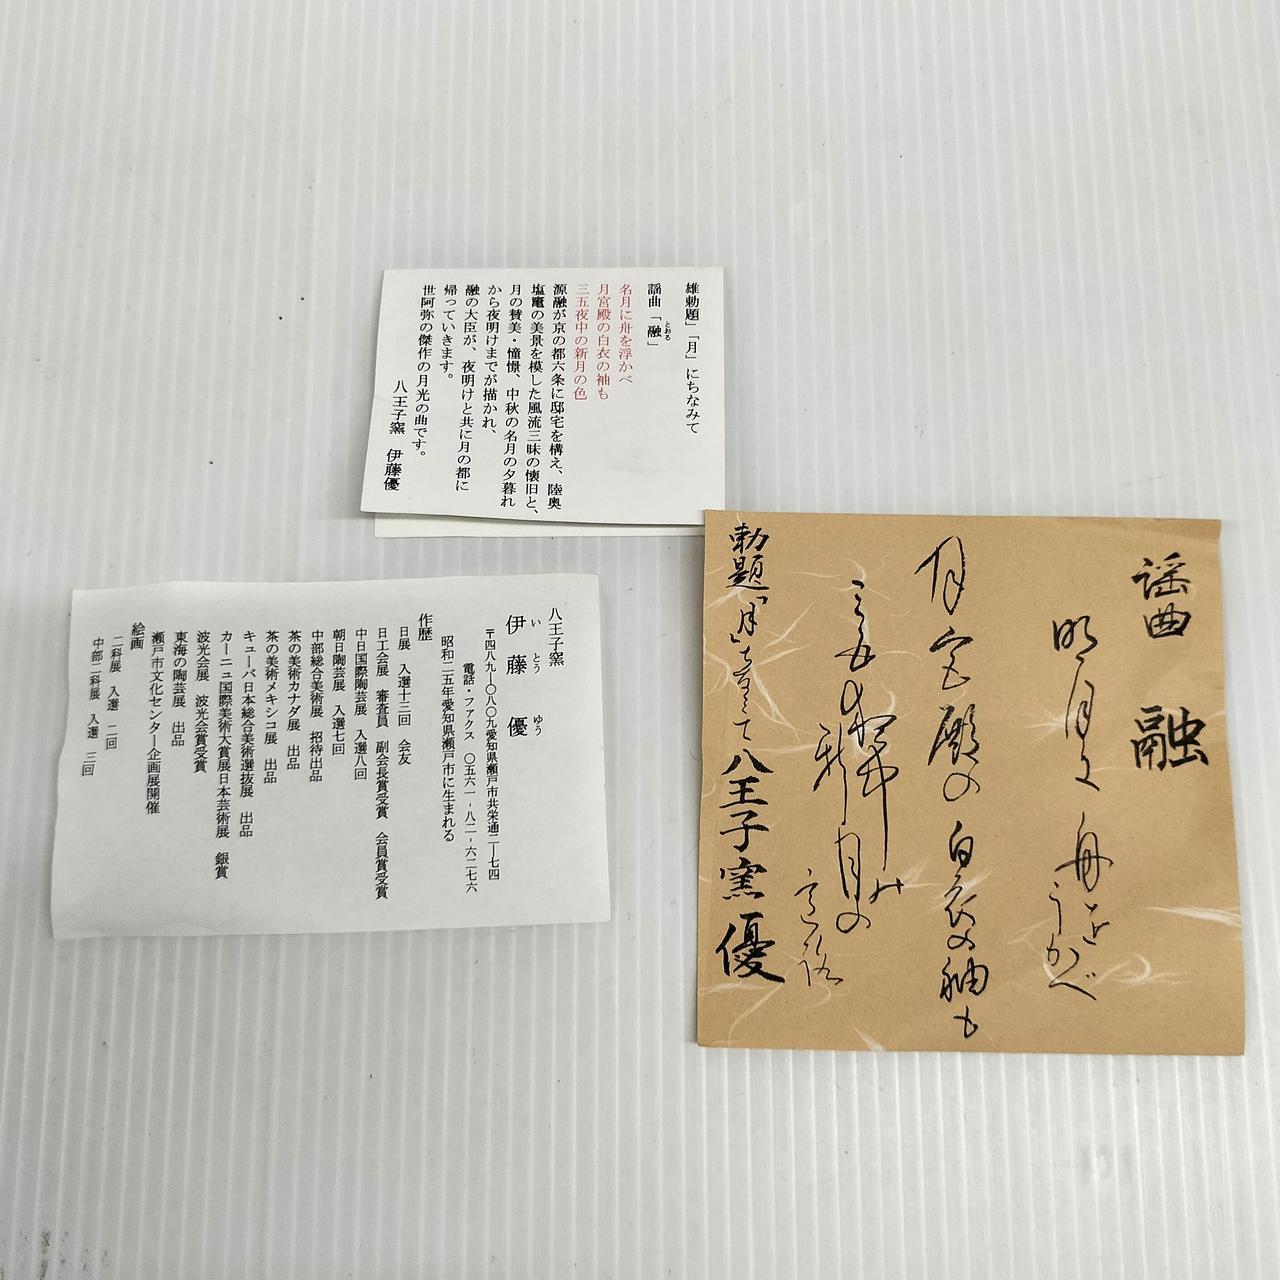 雄勅題」「月」にちなみて
謡曲「融」
とおる
名月に舟を浮かべ
月宮殿の白衣の袖も
三五夜中の新月の色」
源融が京の都六条に邸宅を構え、陸奥
塩竈の美景を模した風流三昧の懐旧と、
月の賛美・憧憬、中秋の名月の夕暮れ
から夜明けまでが描かれ、
融の大臣が、夜明けと共に月の都に
帰っていきます。
世阿弥の傑作の月光の曲です。
八王子窯 伊藤優
謡曲 融
明月に舟を
うかべ
月宮殿の白衣の袖も
三五夜中の
新月の
勅題「月」ちなみて 八王子窯 優
八王子窯
伊藤 優
いとう ゆう
〒四八九―〇八〇九愛知県瀬戸市共栄通二―七四
電話・ファクス 〇五六一-八二-六二七六
昭和二五年愛知県瀬戸市に生まれる
作歴
日展 入選十三回 会友
日工会展 審査員 副会長賞受賞 会員賞受賞
中日国際陶芸展 入選八回
朝日陶芸展 入選七回
中部総合美術展 招待出品
茶の美術カナダ展 出品
茶の美術メキシコ展 出品
キューバ日本総合美術選抜展 出品
カーニュ国際美術大賞展日本芸術展 銀賞
波光会展 波光会賞受賞
東海の陶芸展 出品
瀬戸市文化センター企画展開催
絵画
二科展 入選 二回
中部二科展 入選 三回